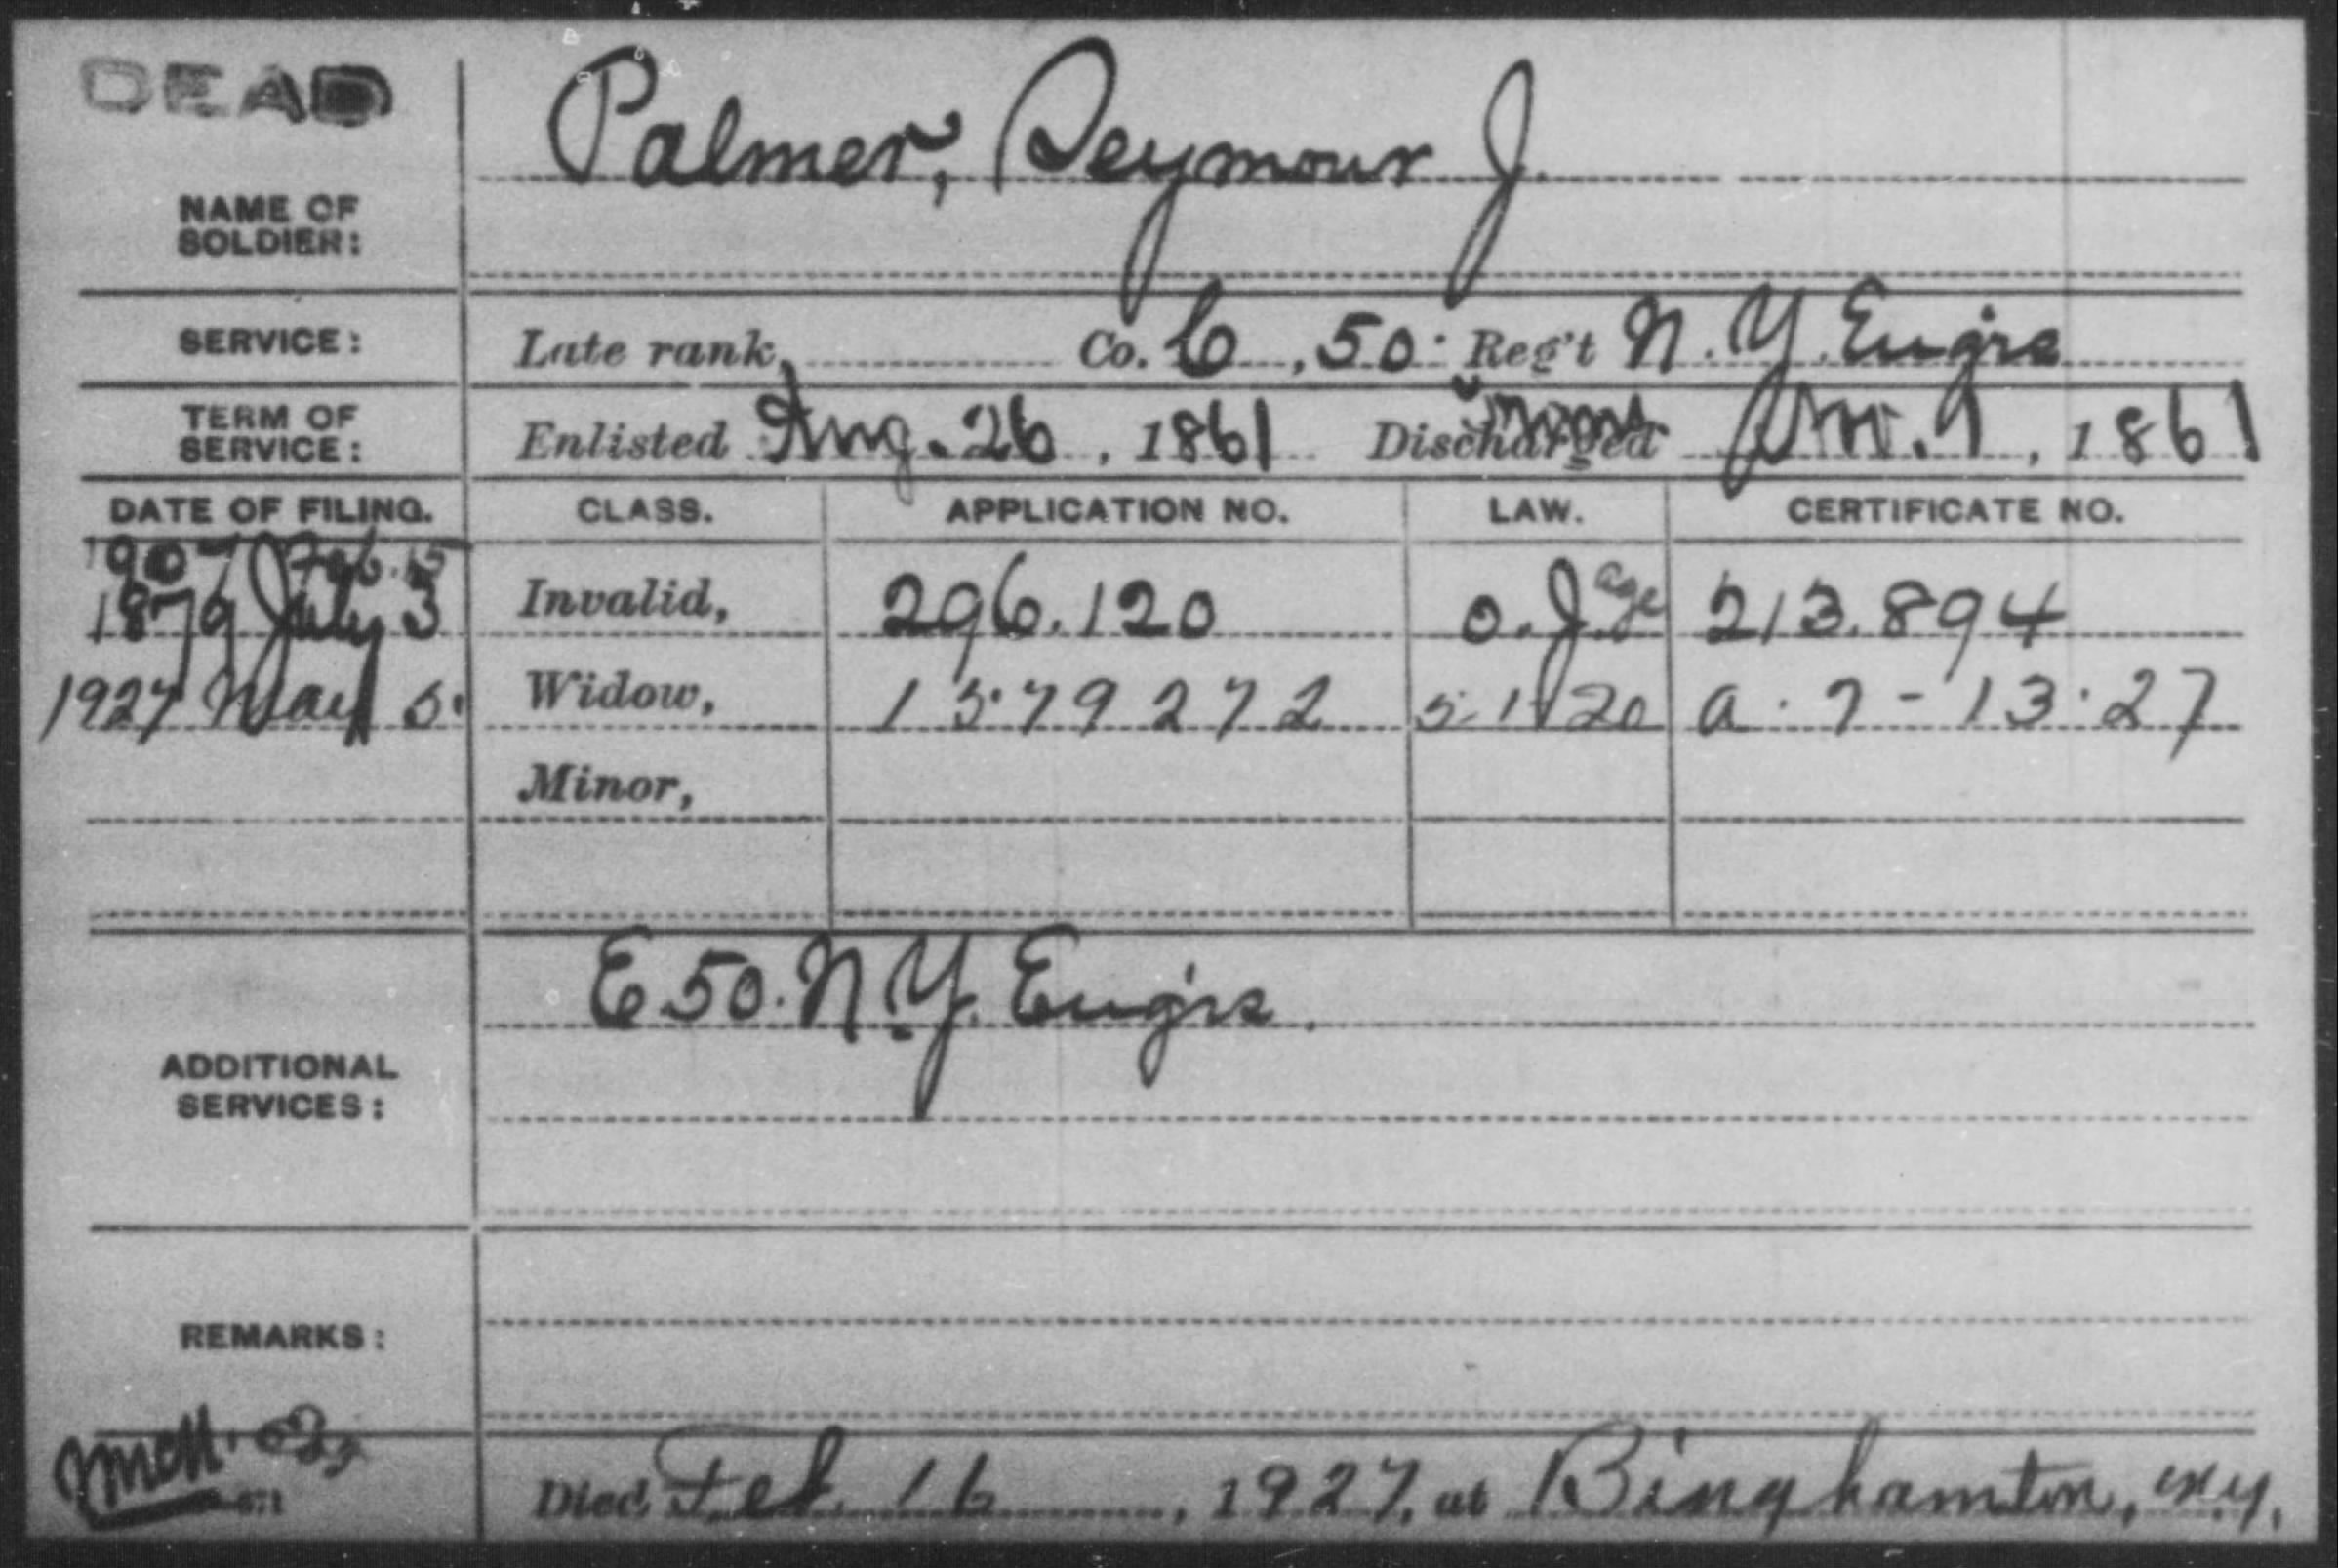 DEAD
Palmer, Seymour J.
NAME OF
SOLDIER:
SERVICE: Late rank, Co. C, 50 Reg't N.Y. Eng'rs
TERM OF
SERVICE: Enlisted Aug. 26, 1861 Discharged 1861
DATE OF FILING. CLASS. APPLICATION NO. LAW. CERTIFICATE NO.
1907 Feb. 15
1879 July 3 Invalid, 296.120 O.J. age 213.894
1927 May 5. Widow, 1579272 5-1-20 a. 7-13-27
Minor,
E 50. N.Y. Eng'rs.
ADDITIONAL
SERVICES:
REMARKS:
Died Feb 16, 1927, at Binghamton, N.Y.